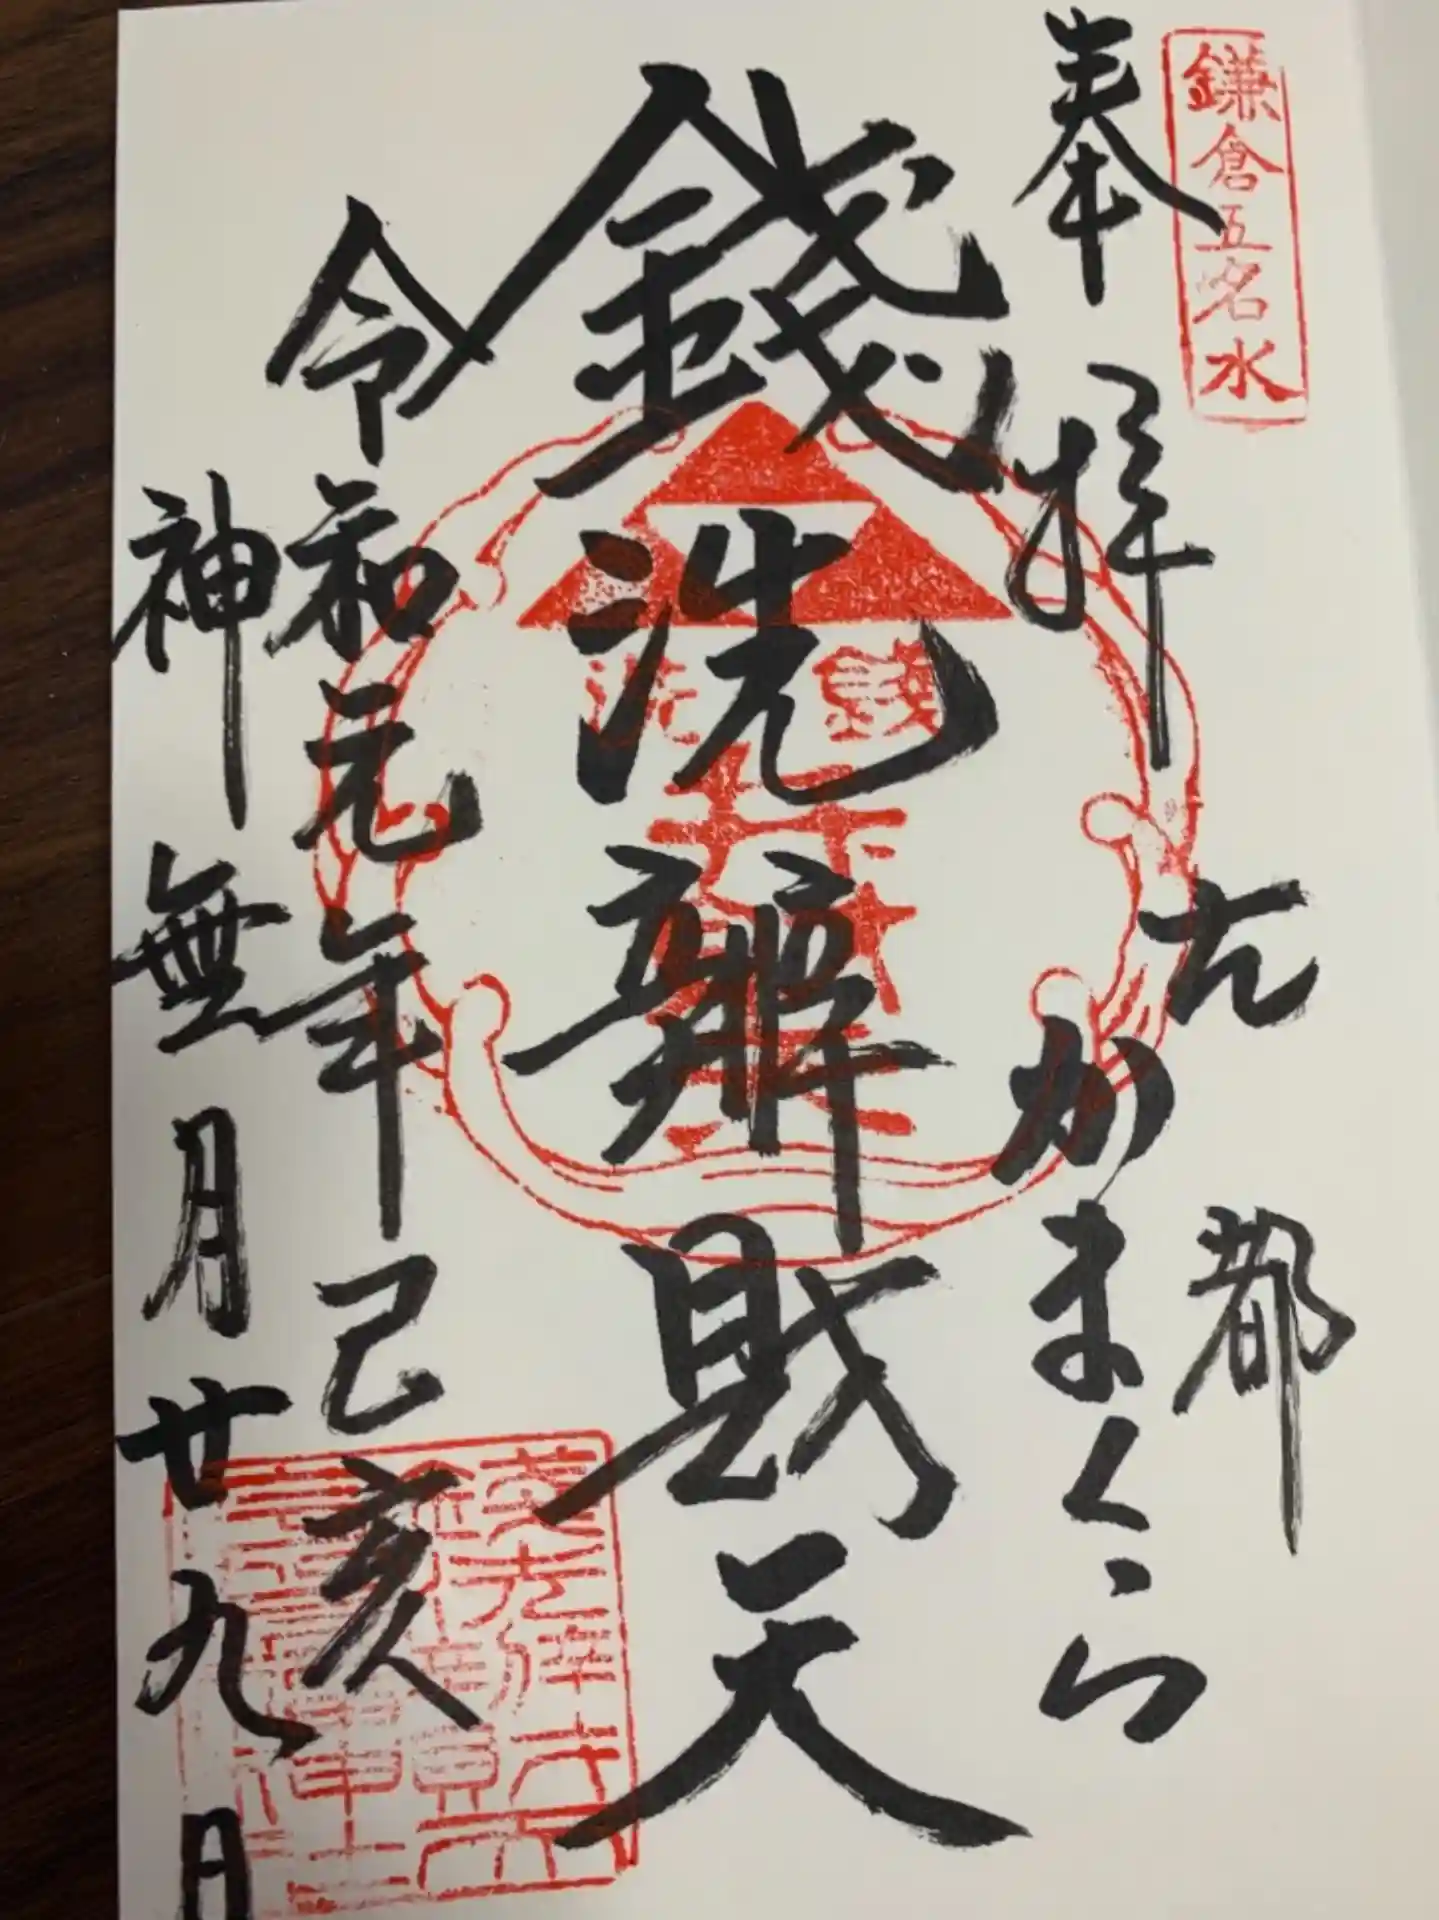 鎌倉五名水
奉拝
古都
かまくら
錢洗辨財天
錢洗
令和元年己亥
神無月廿九日